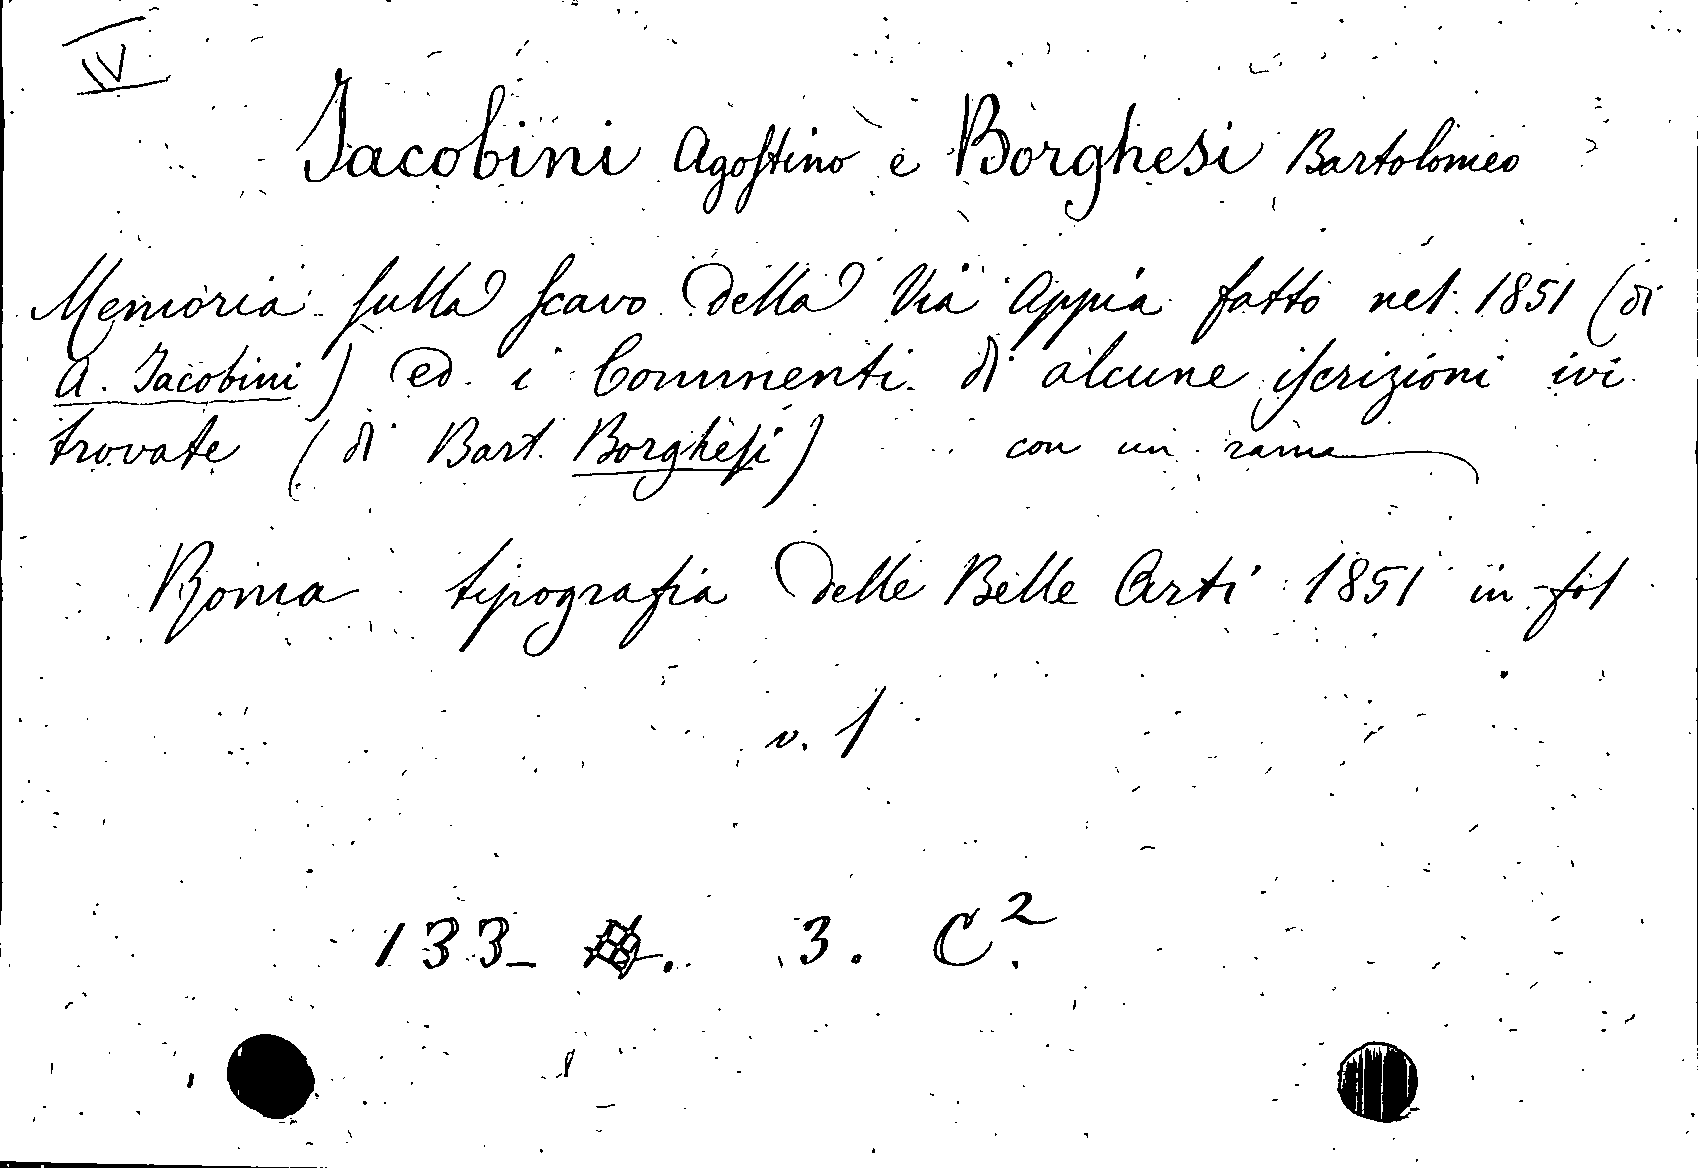 IV
Jacobini Agostino e Borghesi Bartolomeo
Memoria sulla scavo della Via Appia fatto nel 1851 (di
A. Jacobini) ed i Commenti di alcune iscrizioni ivi
trovate (di Bart. Borghesi) con un rame
Roma tipografia delle Belle Arti 1851 in-fol
v. 1
133- 3. C²